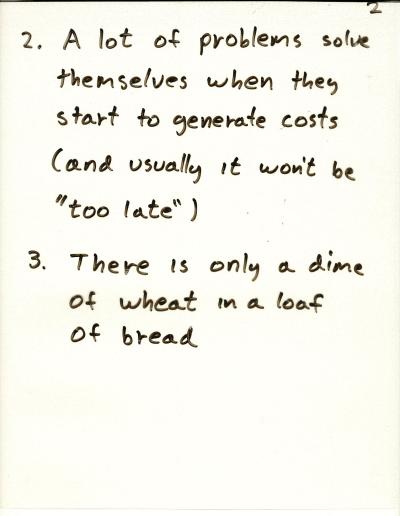 2
2. A lot of problems solve
themselves when they
start to generate costs
(and usually it won't be
"too late")
3. There is only a dime
of wheat in a loaf
of bread